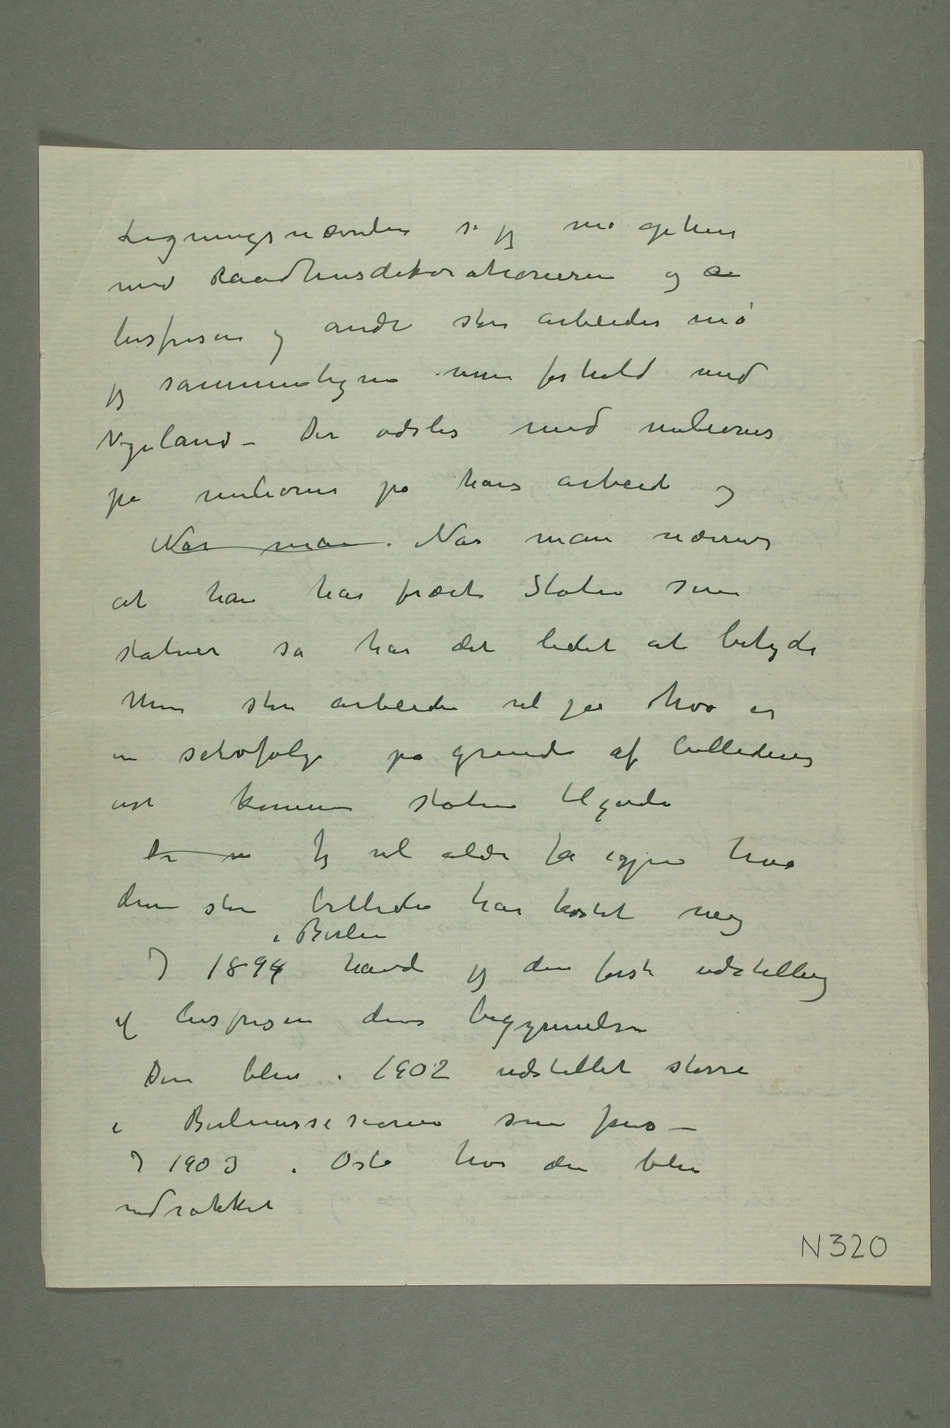 Ligningsnævnden så jeg må ophøre
med Raadhusdekorationerne og
livsfrisen og andre store arbeider må
jeg sammenligne mine forhold med
Vigeland – Der ødsles med millioner
på millioner på hans arbeide og
Når man. Når man nævner
at han har foræret Staten sine
statuer så har det lidet at betyde
Mine store arbeider vil jo hvad er
en selvfølge på grund af billedernes
art komme staten tilgode
Jeg vil aldri få igjen hvad
disse store billeder har kostet mig
i Berlin
I 1894 havde jeg den første udstilling
af livsfrisen dens begyndelse
Den blev i 1902 udstillet større
i Berlinersesionen som frise –
I 1903 i Oslo hvor den blev
nedrakket
N320